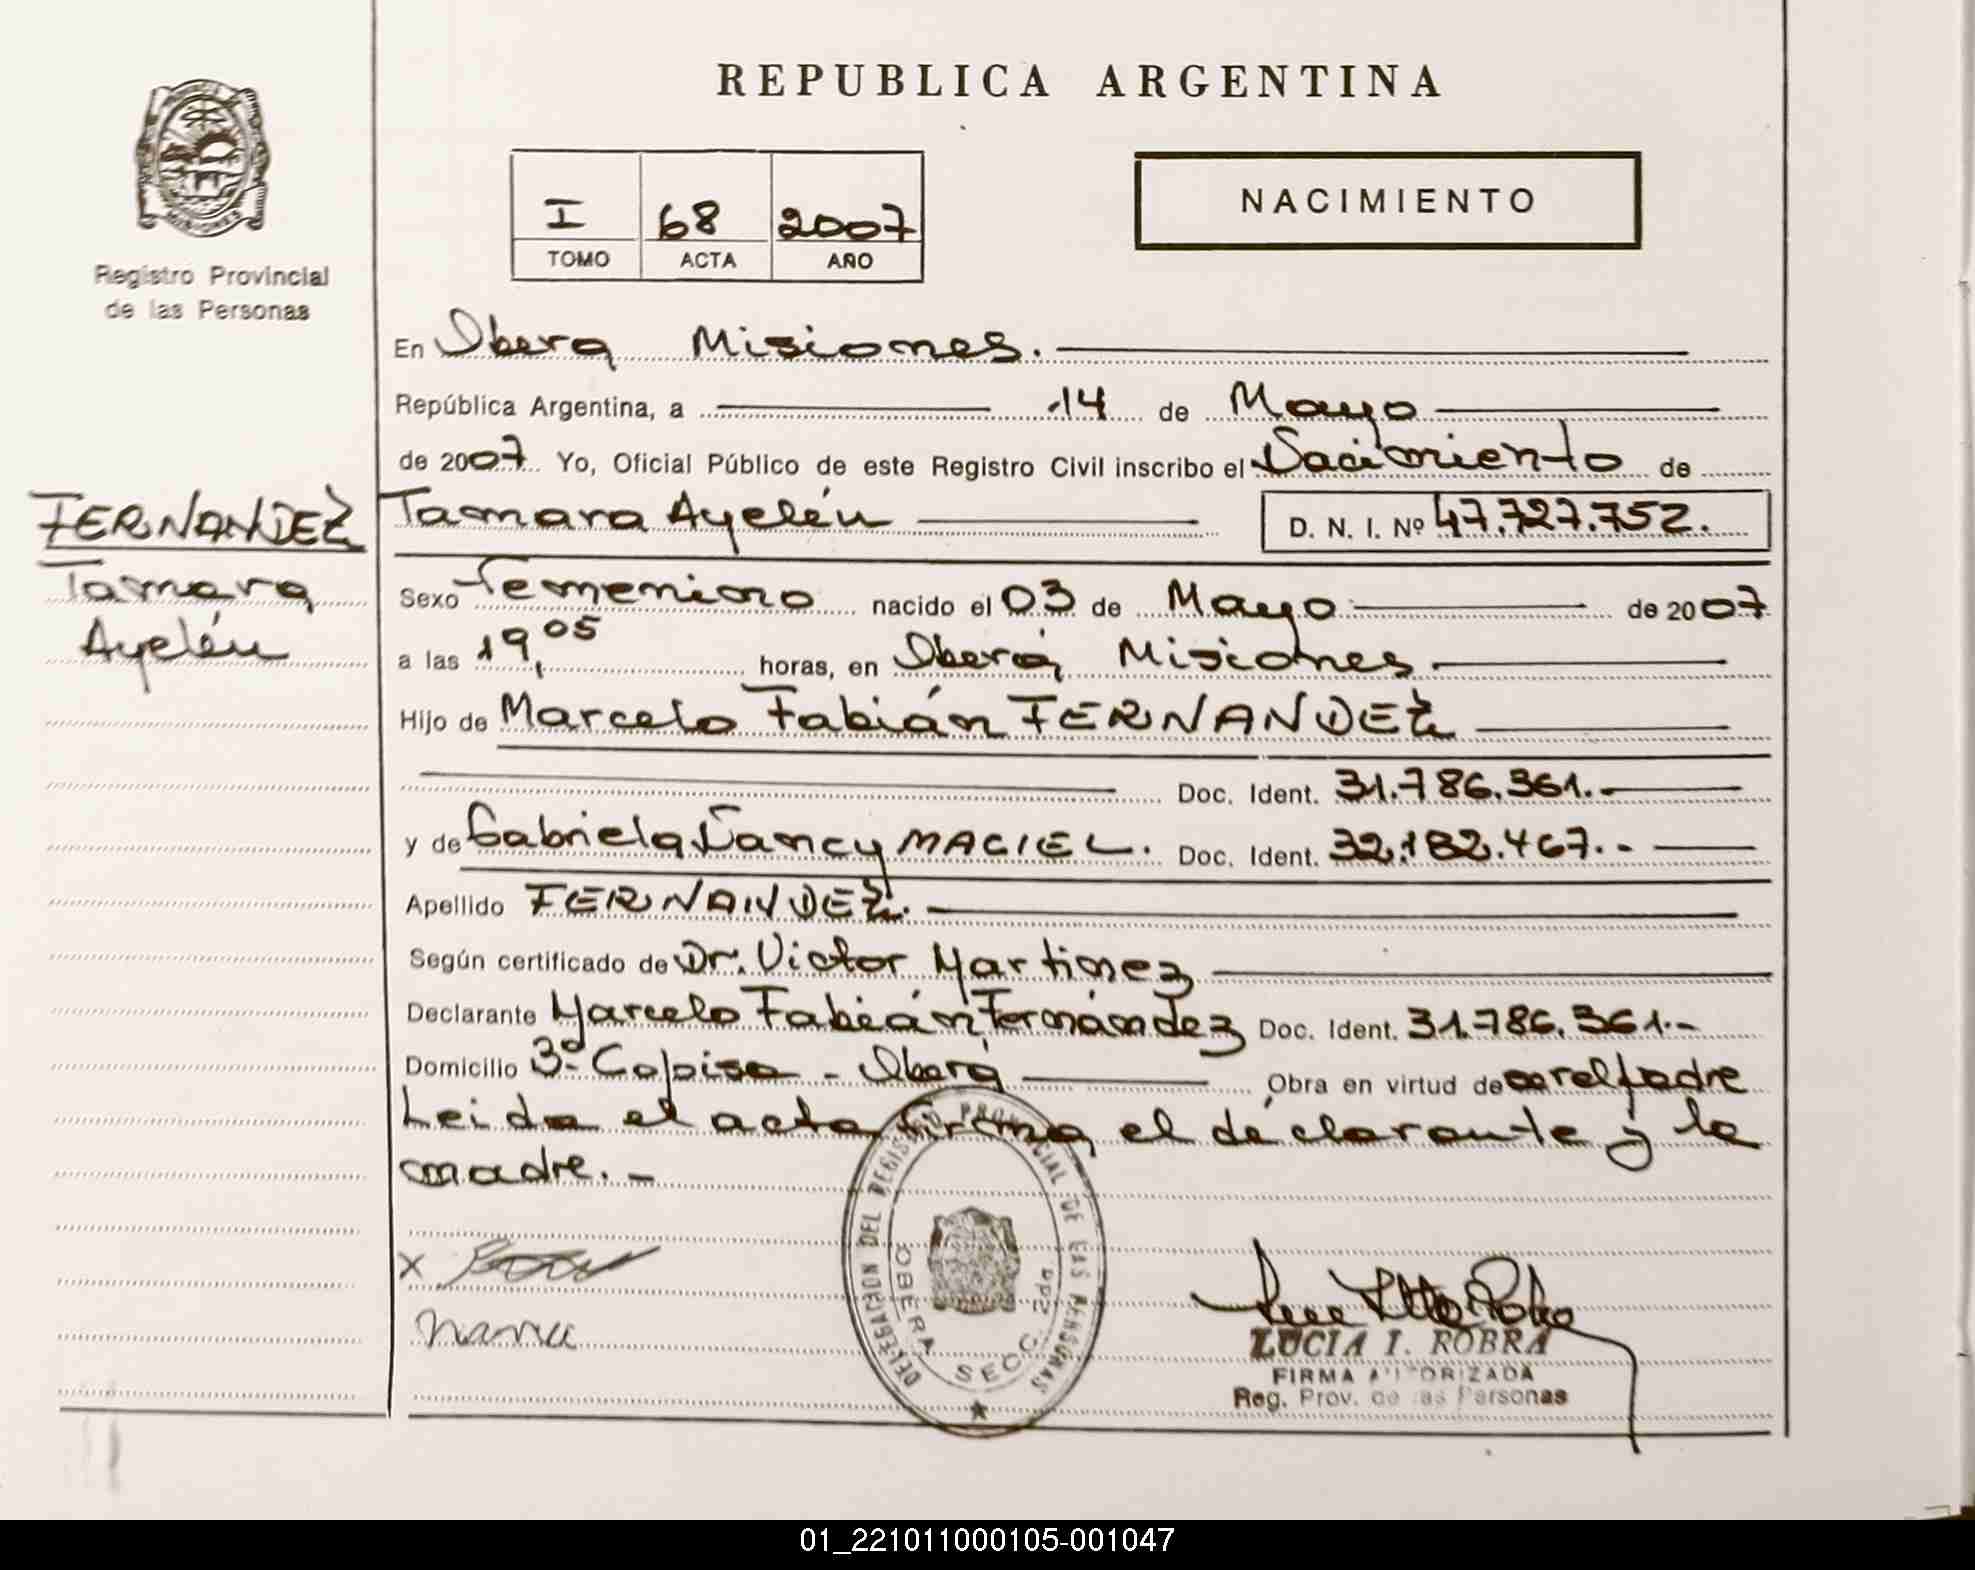 REPUBLICA ARGENTINA
Registro Provincial
de las Personas
I 68 2007
TOMO ACTA AÑO
NACIMIENTO
En Oberá Misiones.
República Argentina, a 14 de Mayo
de 2007 Yo, Oficial Público de este Registro Civil inscribo el Nacimiento de
FERNANDEZ
Tamara
Ayelén
Tamara Ayelén D. N. I. Nº 47.727.752.
Sexo Femenino nacido el 03 de Mayo de 2007
a las 19,05 horas, en Oberá Misiones
Hijo de Marcelo Fabián FERNANDEZ
Doc. Ident. 31.786.361.-
y de Gabriela Nancy MACIEL. Doc. Ident. 32.182.467.-
Apellido FERNANDEZ.
Según certificado de Dr. Victor Martinez
Declarante Marcelo Fabián Fernández Doc. Ident. 31.786.361.-
Domicilio 3º Colpisa - Oberá Obra en virtud de padre
Leida el acta firma el declarante y la
madre.-
DELEGACION DEL REGISTRO PROVINCIAL DE LAS PERSONAS
OBERA SECC. 2da
LUCIA I. ROBRA
FIRMA AUTORIZADA
Reg. Prov. de las Personas
01_221011000105-001047